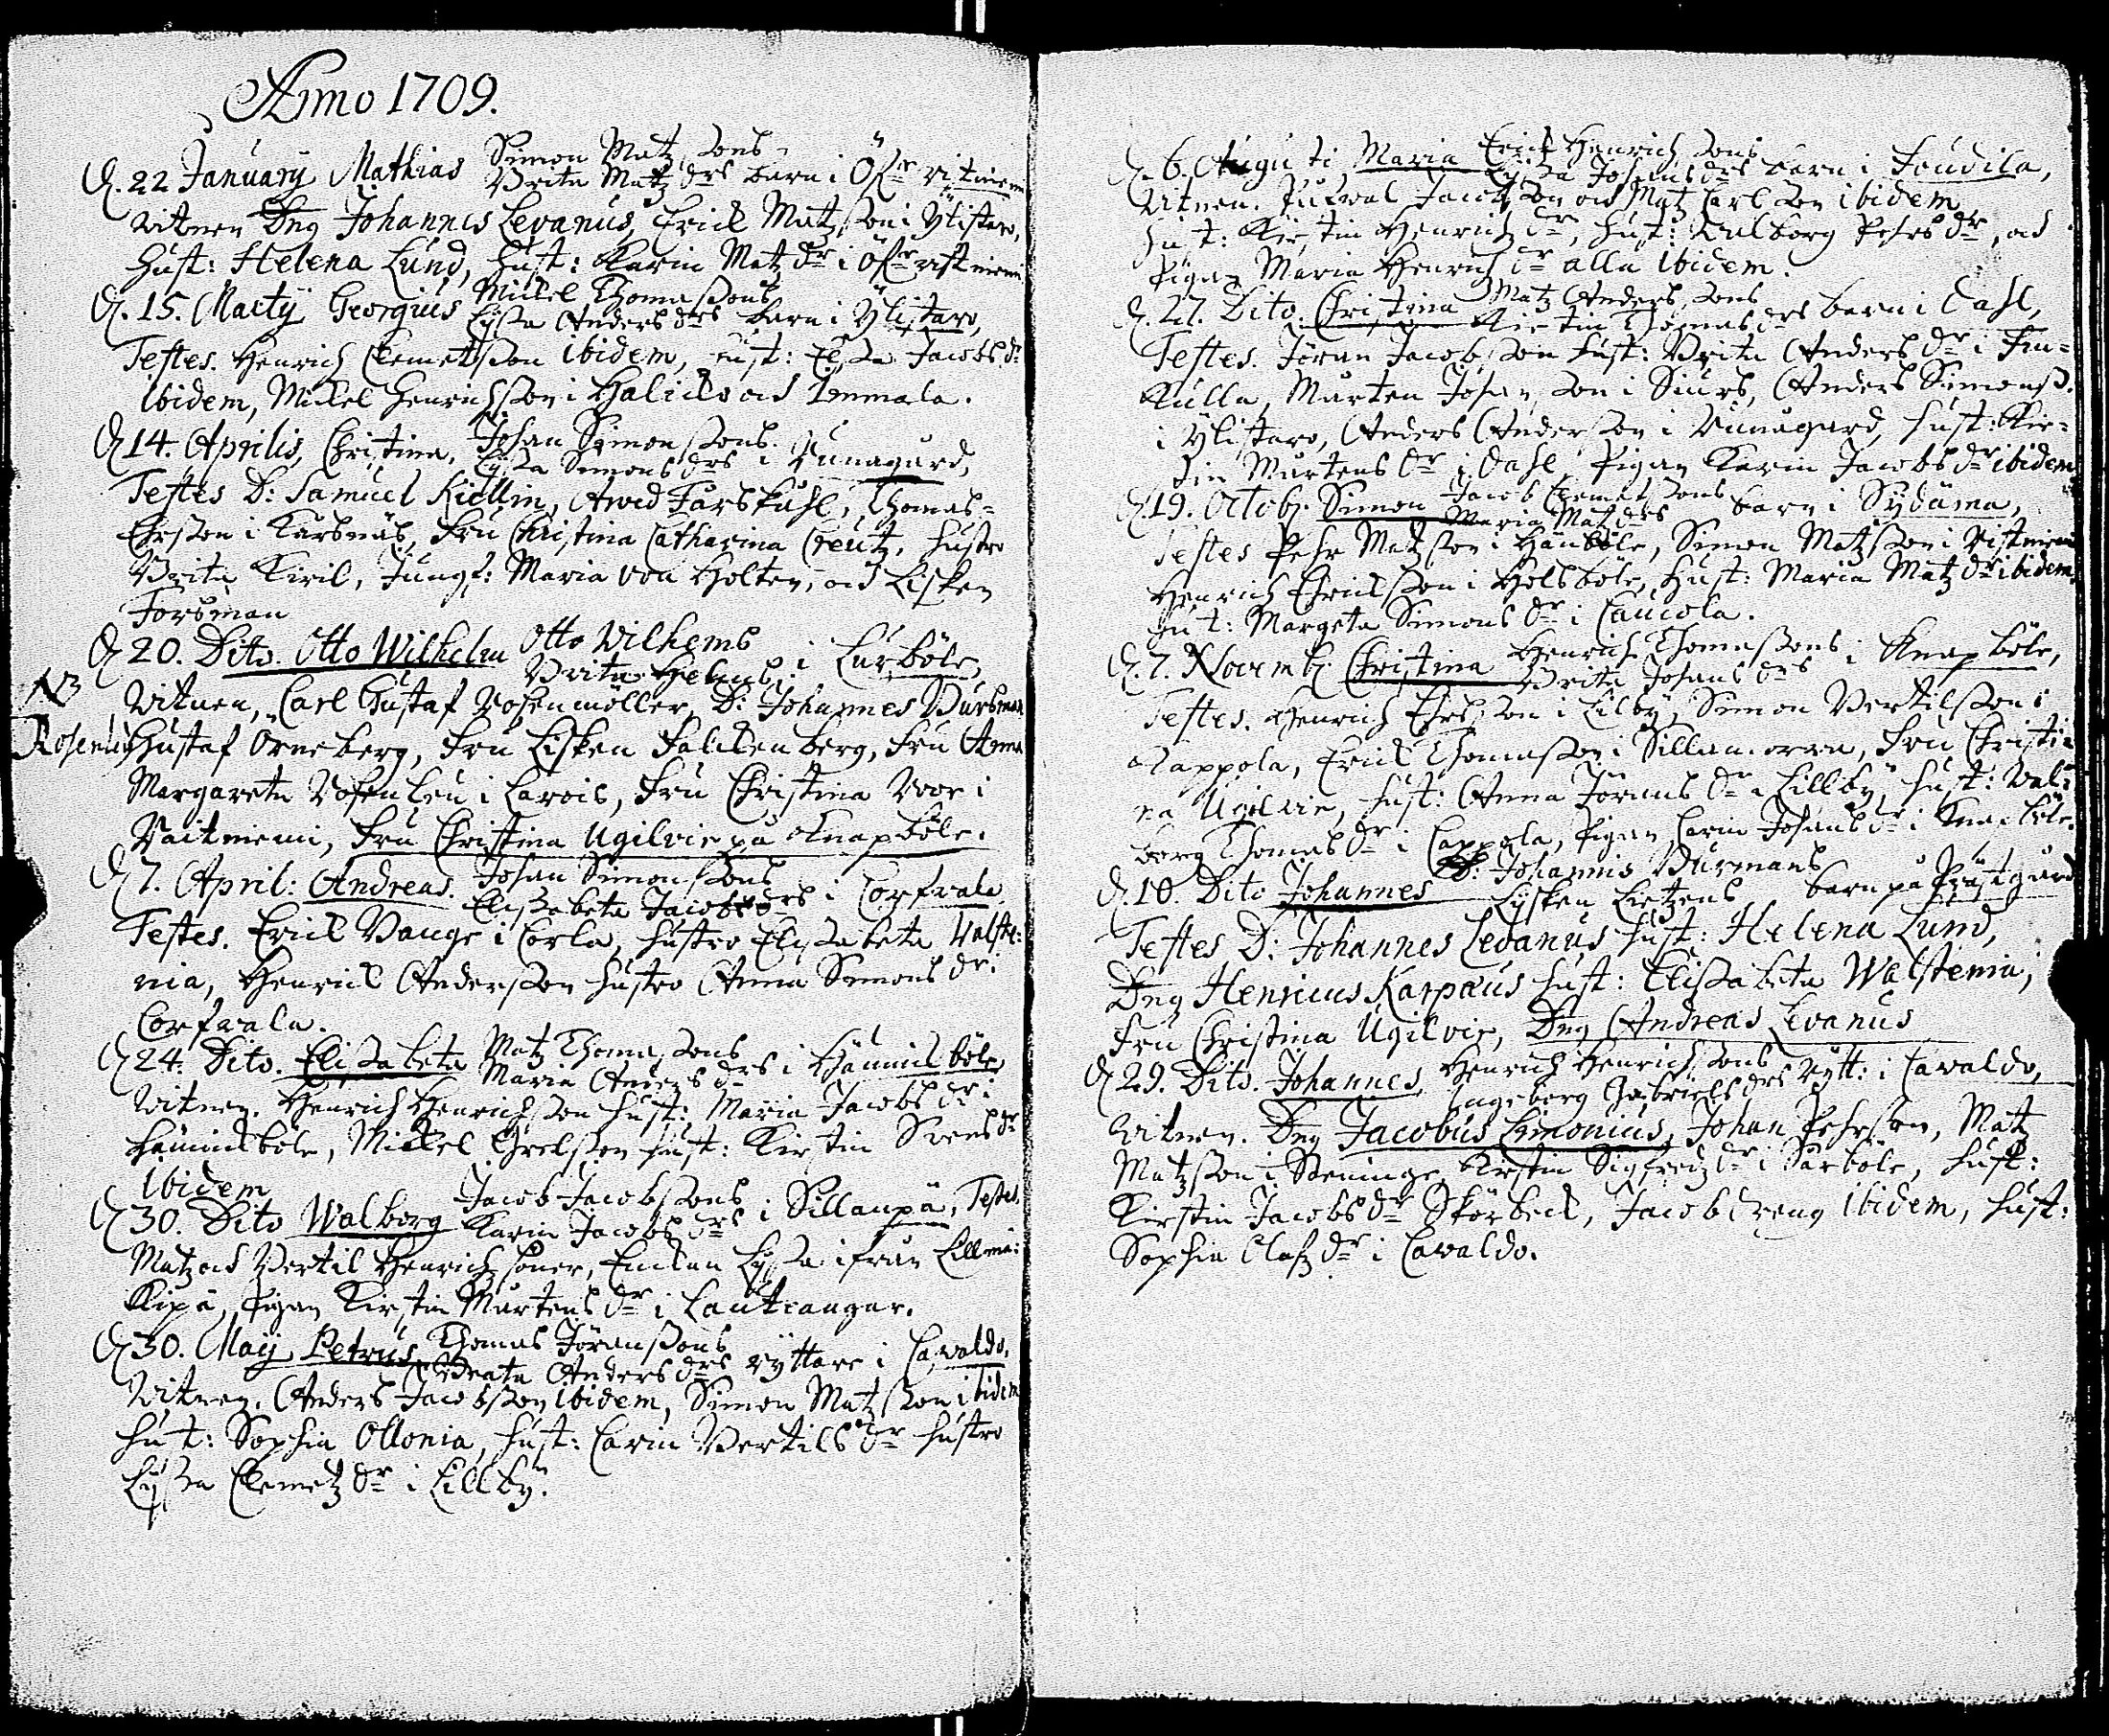 Anno 1709.
D. 22 January Mathias Simon Matz sons
Brita Matz drs barn i Öfr ristniemi
witnen Dng Johannes Levanus, Erick Matzson i Ylistaro,
Hust: Helena Lund, Hust: Karin Matz dr i Öfr ristniemi
D. 15. Marty Georgius Mickel Thomassons
Lyssa Anders drs barn i Ylistaro,
Testes. Henrich Clemetsson ibidem, Hust: Lyssa Jacobs dr
ibidem, Mickel Henrichsson i och Immala.
D 14. Aprilis, Christina, Johan Simonssons
Lyssa Simons drs i Gunnagård,
Testes D: Samuel Kiellin, Arved Farskahl, Thomas
Ehrsson i Karsnäs, Fru Christina Catharina Creutz, Hustro
Brita Kiril, Jungf: Maria von Holten, och Lisken
Forsman
D 20. Dito. Otto Wilhelm Otto Wilhems
Brita Helens i Lurböle,
NB
Witnen, Carl Gustaf Rosenmöller, D: Johannes Burman
Gustaf Örneberg, Fru Lisken Falckenberg, Fru Anna
Margareta Rosenleu i Larois, Fru Christina Boor i
Vaitniemi, Fru Christina Ugilvie på Knapböle.
D 7. April: Andreas. Johan Simonssons
Elissabeta Jacobs drs i Corfvala.
Testes. Erick Bange i Corla, Hustro Elissabeta Walste:
nia, Henrick Andersson Hustro Anna Simons dr i
Corfvala.
D 24. Dito. Elissabeta Matz Thomassons
Maria Anders drs i Hännicksböle,
Witnen. Henrich Henrichsson Hust: Maria Jacobs dr i
Hännicksböle, Mickel Hust: Kirstin Svens dr
Ibidem
D 30. Dito Walborg Jacob Jacobssons
Karin Jacobs drs i Sillanpä, Testes.
Matz och Bertil Henrichz söner, Enckan Lyssa ifrån Lillmä:
Kipä, Pigan Kirstin Mårtens dr i Lautcangar.
D 30. Maij Petrus Thomas Jöranssons
Beata Anders drs ryttare i Cawaldo,
Witnen. Anders Jacobsson ibidem, Simon Matzsson ibidem
Hust: Sophia Ollonia, Hust: Carin Bertils dr Hustro
Lyssa Clemetz dr i Lillby.
D. 6. Augusti, Maria Erick Henrich sons
Lyssa Johans drs barn i Joudila,
Witnen. Jacob son och Matz Carlson ibidem
Hust: Kirstin Henrich dr, Hust: Walborg Pehrs dr, och
Pigan Maria Henrich dr alla ibidem.
D. 27. Dito. Christina Matz Anders sons
Kirstin Thomas drs barn i Dahl,
Testes. Jöran Jacobson Hust: Brita Anders dr i Fin=
Kulla, Mårten Johanson i Siurs, Anders Simonss.
i Ylistaro, Anders Andersson i Gunnagård, Hust: Kir=
stin Mårtens dr i Dahl, Pigan Karin Jacobs dr ibidem
D. 19. Octob. Simon Jacob Clemet sons
Maria Matz drs barn i Sydäma,
Testes Pehr Matzson i Hanböle, Simon Matzsson i Ristniemi
Henrich Ericksson i Holsböle, Hust: Maria Matz dr ibidem,
Hust: Margeta Simons dr i Caucola.
D. 7. Novemb: Christina Henrich Thomassons
Brita Johans drs i Knapböle,
Testes. Henrich Ehrsson i Lilby, Simon Bertilsson i
Kappola, Erick Thomasson i Fru Christi=
na Ugilvie, Hust: Anna Jörans dr i Lillby, Hust: Wal=
borg Thomas dr i Cappola, Pigan Carin Johans dr i Knapböle.
D. 10. Dito Johannes D: Johannis Burmans
Lysken Lietzens barn på Prästgård
Testes D: Johannes Levanus Hust: Helena Lund,
Dng Henricus Karpæus Hust: Elissabeta Walstenia,
Fru Christina Ugilvie, Dng Andreas Levanus
D 29. Dito. Johannes Henrich Henrichsons
Ingeborg Gabriels drs rytt: i Cawaldo,
Witnen. Dng Jacobus Limonius, Johan Pehrsson, Matz
Matzsson i Steninge, Kirstin Sigfredz dr i Särböle, Hust:
Kirstin Jacobs dr Störbeck, Jacob dreng ibidem, Hust:
Sophia Olafz dr i Cawaldo.